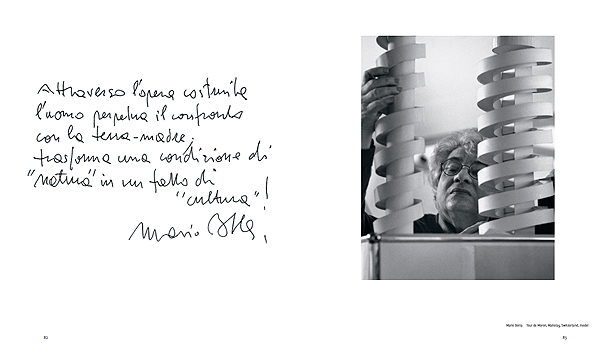 Attraverso l'opera costruita
l'uomo perpetua il confronto
con la terra-madre;
trasforma una condizione di
"natura" in un fatto di
"cultura"!
Mario Botta,
Mario Botta Tour de Moron, Malleray, Switzerland, model
82
83